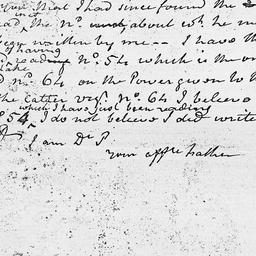 that I had since found the
the No. about wh. he m
written by me -- I have th
of having
reading No. 54 which is the on
d No. 64 on the Power given to t
the latter viz. No. 64 I believe
which I have just been reading
54, I do not believe I did write
I am Dr. P
your affte father